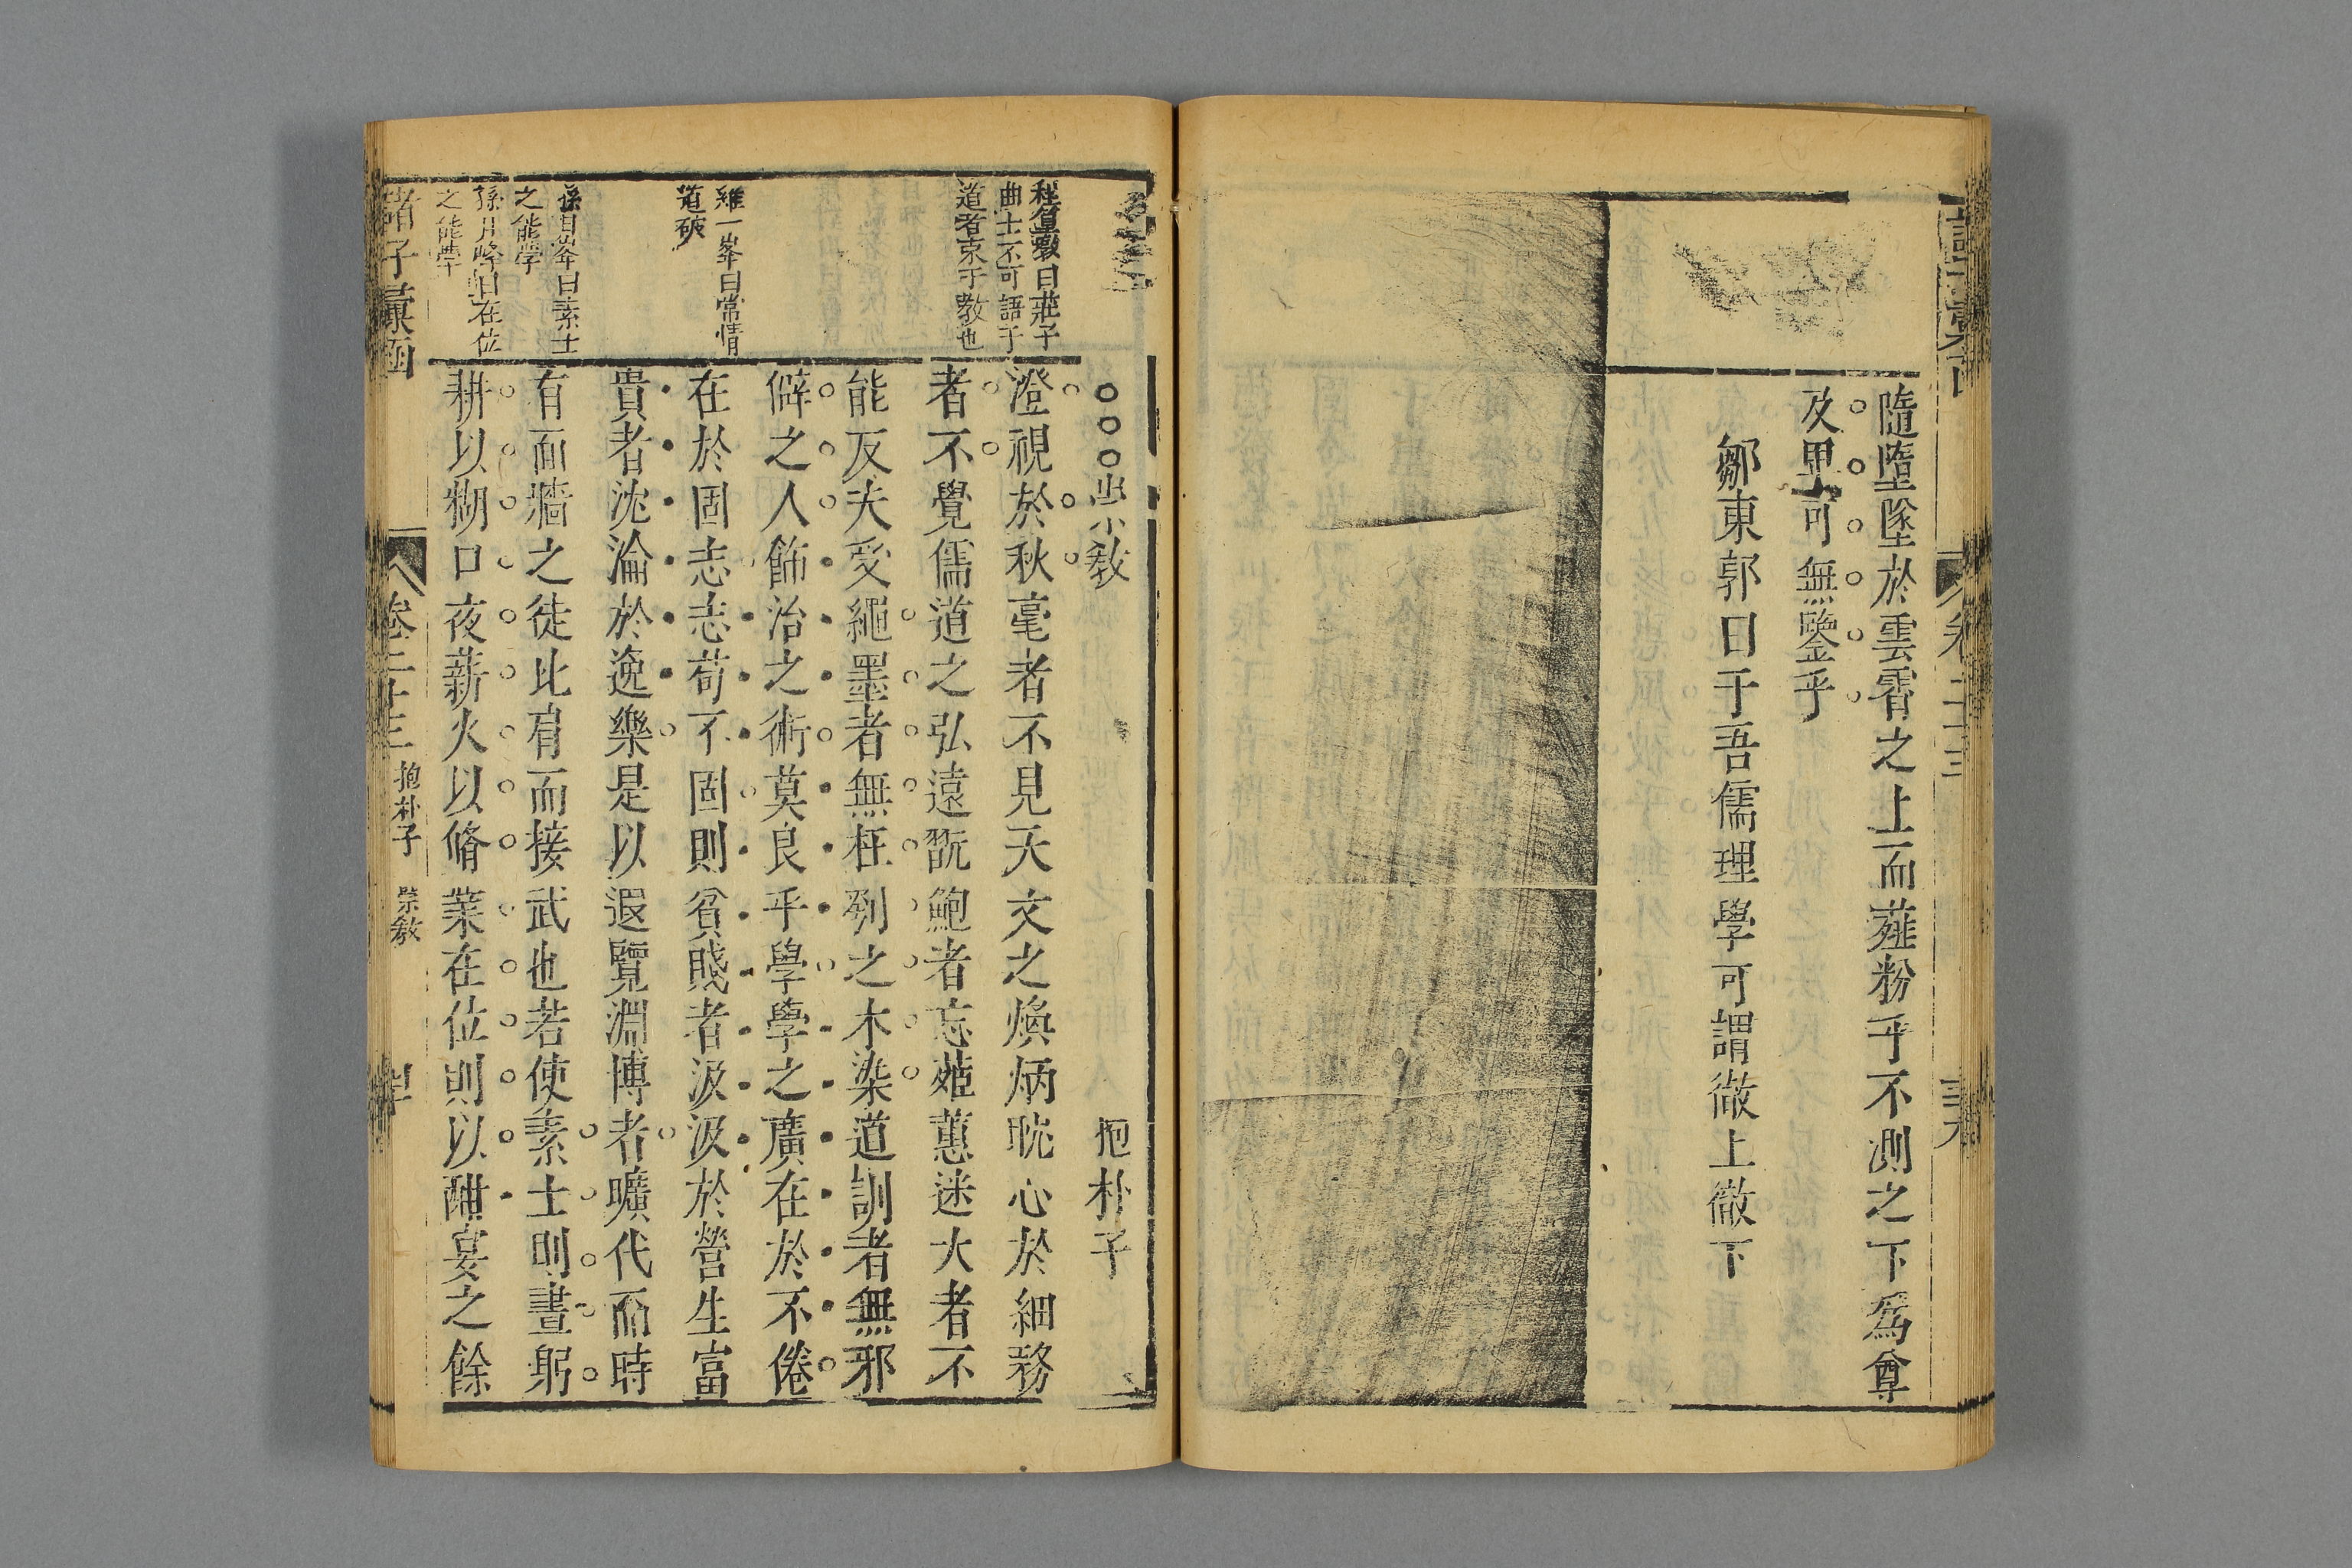 隨墮墜於雲霄之上而虀粉乎不測之下爲尊
及里可無鑒乎
鄒東郭曰于吾儒理學可謂徹上徹下
卷二十三
抱朴子
澄視於秋毫者不見天文之煥炳耽心於細務
者不覺儒道之弘遠翫鮑者忘茝蕙迷大者不
能反夫受繩墨者無枉刳之木染道訓者無邪
僻之人飾治之術莫良乎學學之廣在於不倦不倦
在於固志志苟不固則貧賤者汲汲於營生富
貴者沈淪於逸樂是以遐覽淵博者曠代而時
有面牆之徒比肩而接武也若使素士則晝躬
耕以糊口夜薪火以脩業在位則以酣宴之餘
程篁墩曰莊子
曲士不可語于
道者束于教也
羅一峯曰常情
道破
孫月峯曰素士
之能學
孫月峰曰在位
之能學
諸子彙函
卷二十三
抱朴子
崇教